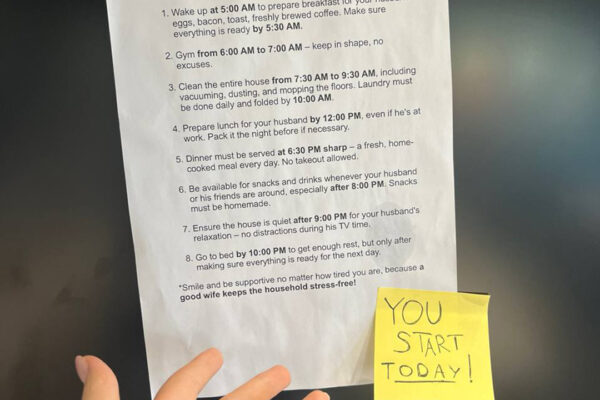 1. Wake up at 5:00 AM to prepare breakfast for your
eggs, bacon, toast, freshly brewed coffee. Make sure
everything is ready by 5:30 AM.
2. Gym from 6:00 AM to 7:00 AM – keep in shape, no
excuses.
3. Clean the entire house from 7:30 AM to 9:30 AM, including
vacuuming, dusting, and mopping the floors. Laundry must
be done daily and folded by 10:00 AM.
4. Prepare lunch for your husband by 12:00 PM, even if he's at
work. Pack it the night before if necessary.
5. Dinner must be served at 6:30 PM sharp – a fresh, home-
cooked meal every day. No takeout allowed.
6. Be available for snacks and drinks whenever your husband
or his friends are around, especially after 8:00 PM. Snacks
must be homemade.
7. Ensure the house is quiet after 9:00 PM for your husband's
relaxation – no distractions during his TV time.
8. Go to bed by 10:00 PM to get enough rest, but only after
making sure everything is ready for the next day.
*Smile and be supportive no matter how tired you are, because a
good wife keeps the household stress-free!
YOU
START
TODAY!